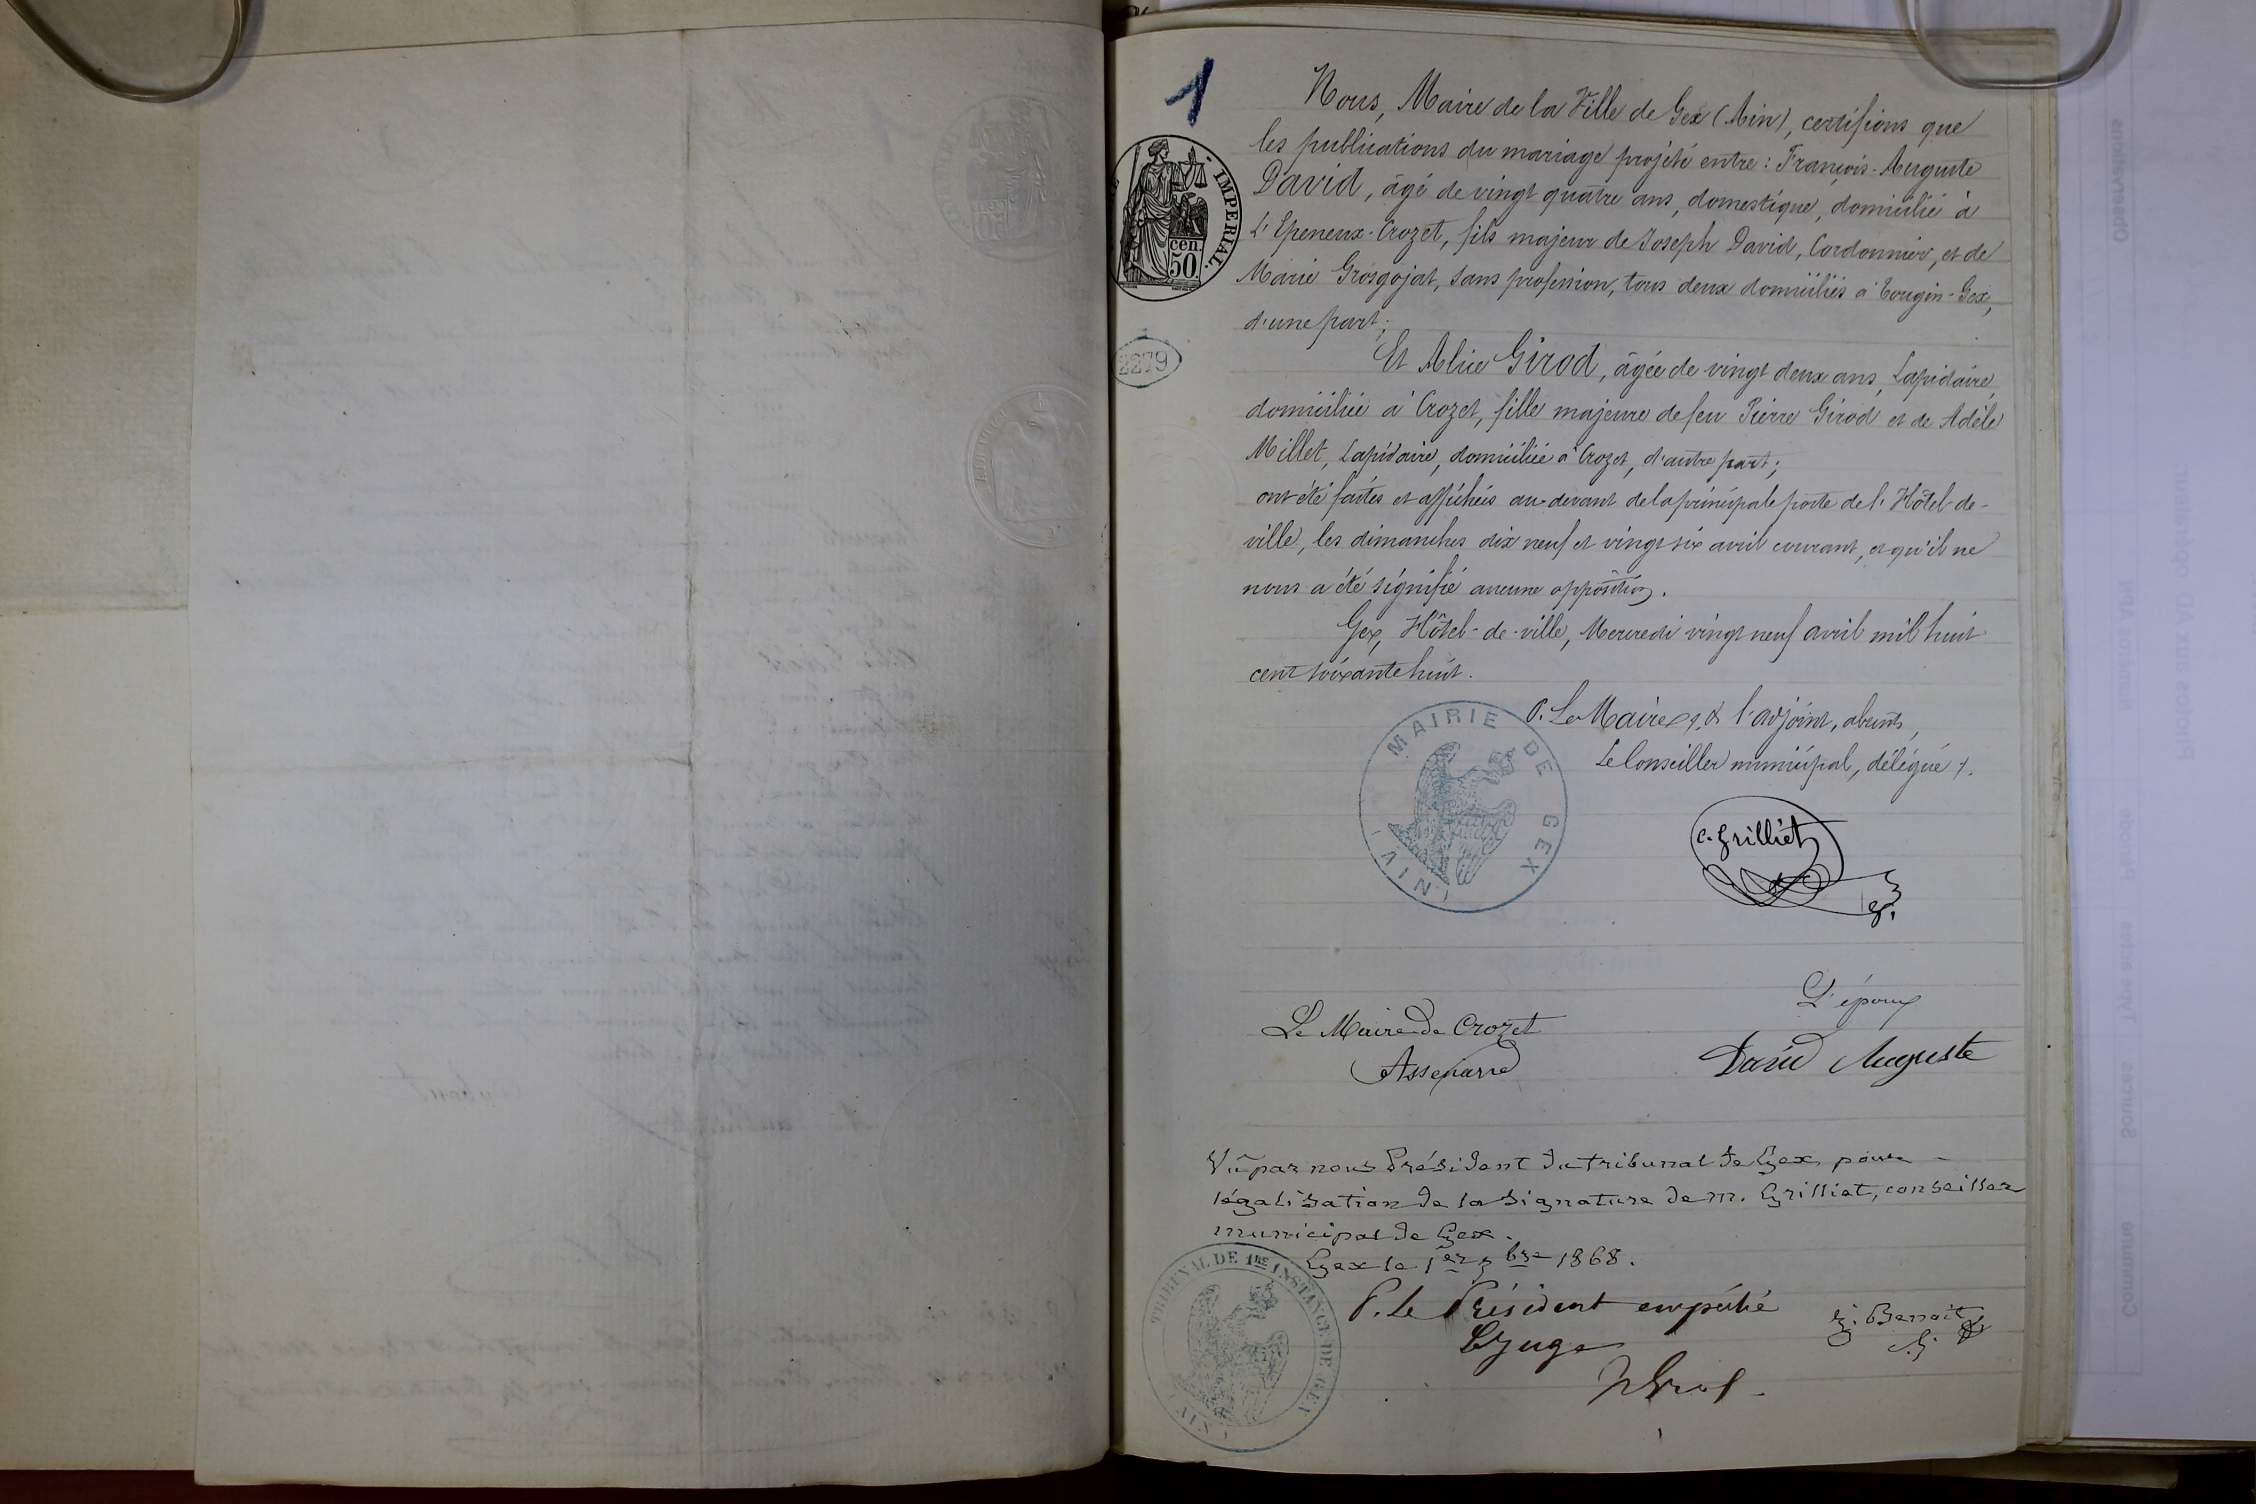 1
IMPERIAL.
cen.
50.
2279
Nous, Maire de la Ville de Gex (Ain), certifions que
les publications du mariage projeté entre : François-Auguste
David, âgé de vingt quatre ans, domestique, domicilié à
L'Epeneux-Crozet, fils majeur de Joseph David, Cordonnier, et de
Marie Grosgojat, sans profession, tous deux domiciliés à Tougin-Gex,
d'une part;
Et Alice Girod, âgée de vingt deux ans, Lapidaire,
domiciliée à Crozet, fille majeure de feu Pierre Girod et de Adèle
Millet, Lapidaire, domiciliée à Crozet, d'autre part;
ont été faites et affichées au devant de la principale porte de l'Hôtel-de-
ville, les dimanches dix neuf et vingt six avril courant, et qu'il ne
nous a été signifié aucune opposition.
Gex, Hôtel-de-ville, Mercredi vingt neuf avril mil huit
cent soixante huit.
P. Le Maire & l'adjoint, absents,
Le Conseiller municipal, délégué
MAIRIE DE GEX
(AIN)
C. Grilliet
L'époux
Le Maire de Crozet
David Auguste
Vu par nous Président du tribunal de Gex, pour
légalisation de la signature de m. Grilliet, conseiller
municipal de Gex.
Gex le 1er bre 1868.
P. Le Président empêché
Benoit
Le Juge
TRIBUNAL DE 1RE INSTANCE DE GEX
(AIN)